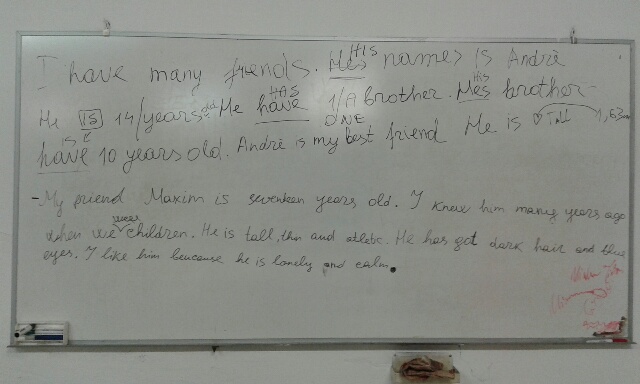 I have many friends. Hes HIS names is Andrè
He is 14/years old He have HAS 1/A ONE brother. Hes His brother
have is 10 years old. Andrè is my best friend He is TALL 1,63m
- My friend Maxim is seventeen years old. I knew him many years ago
when we were children. He is tall, thin and atletic. He has got dark hair and blue
eyes. I like him beucause he is lonely and calm.